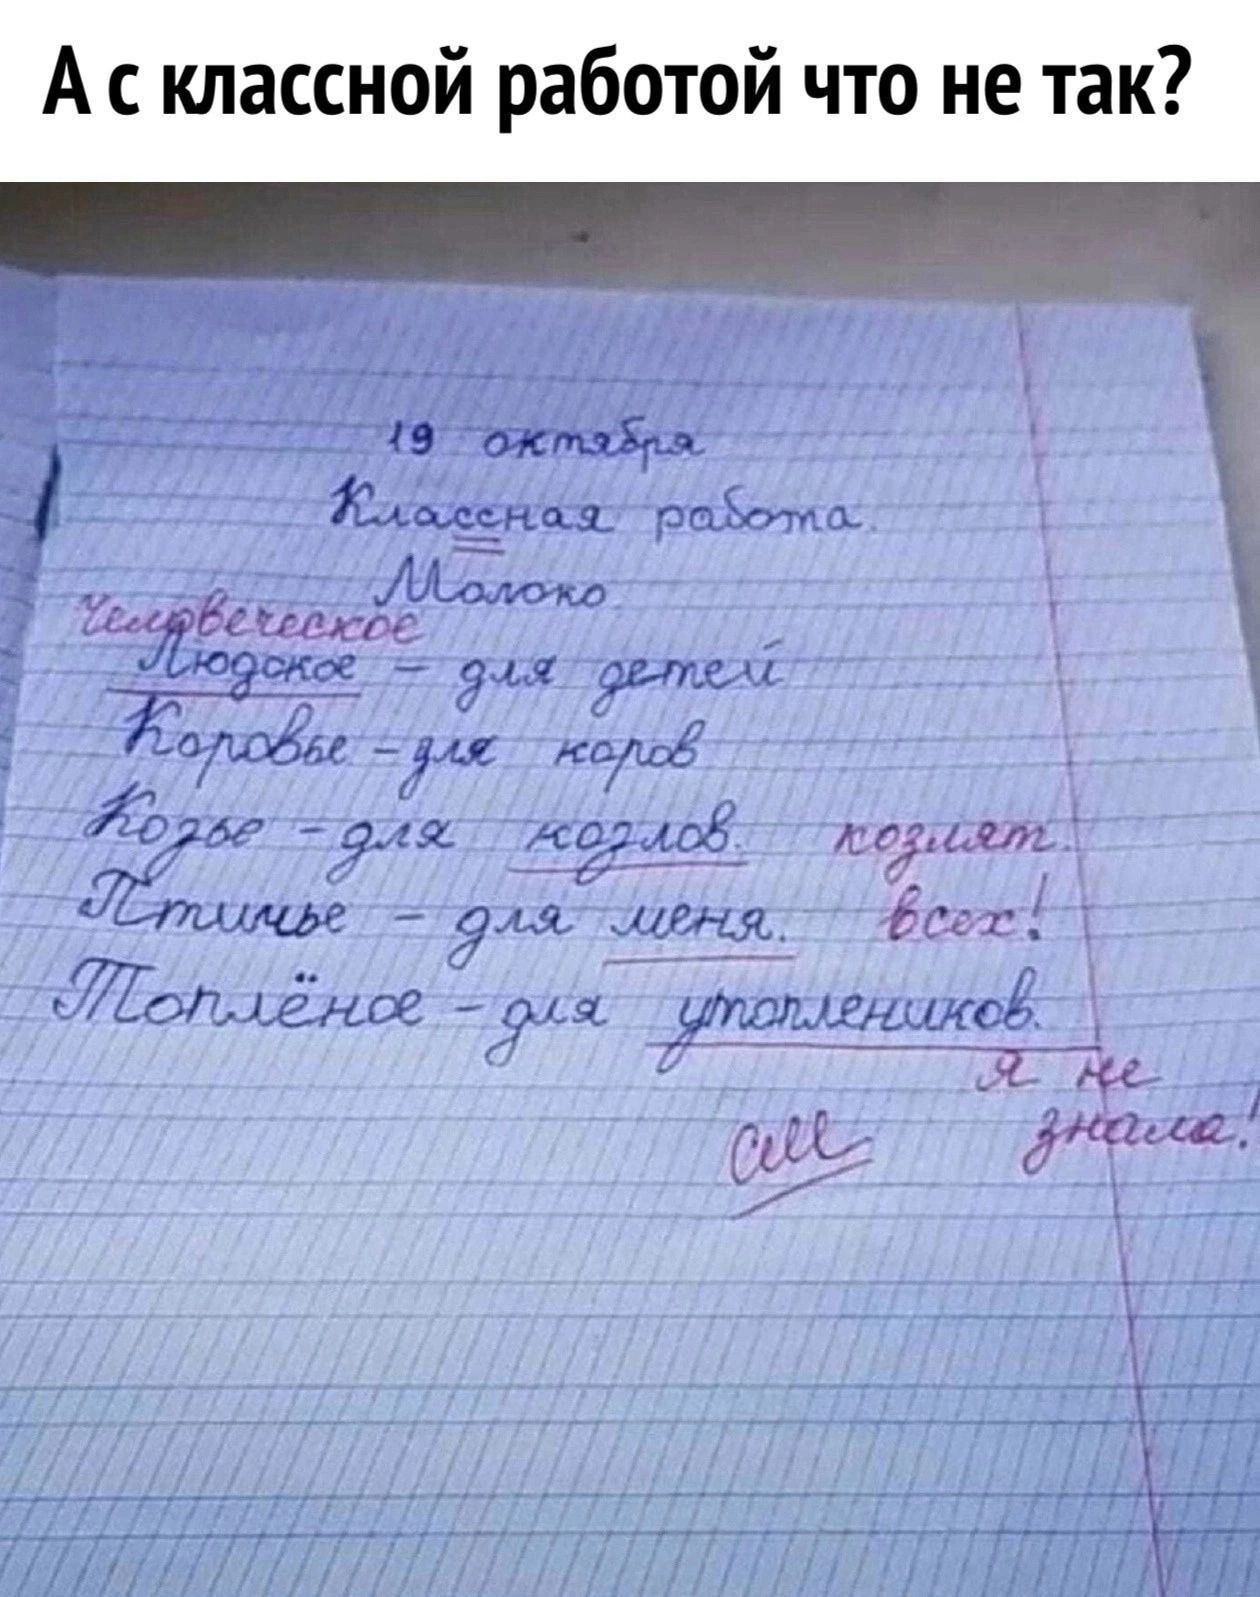 А с классной работой что не так?
19 октября
Классная работа.
Молоко
Человеческое
Людское - для детей
Коровье - для коров
Козье - для козлов. козлят.
Птичье - для меня. всех!
Топлёное - для утоплеников.
я не
знала!